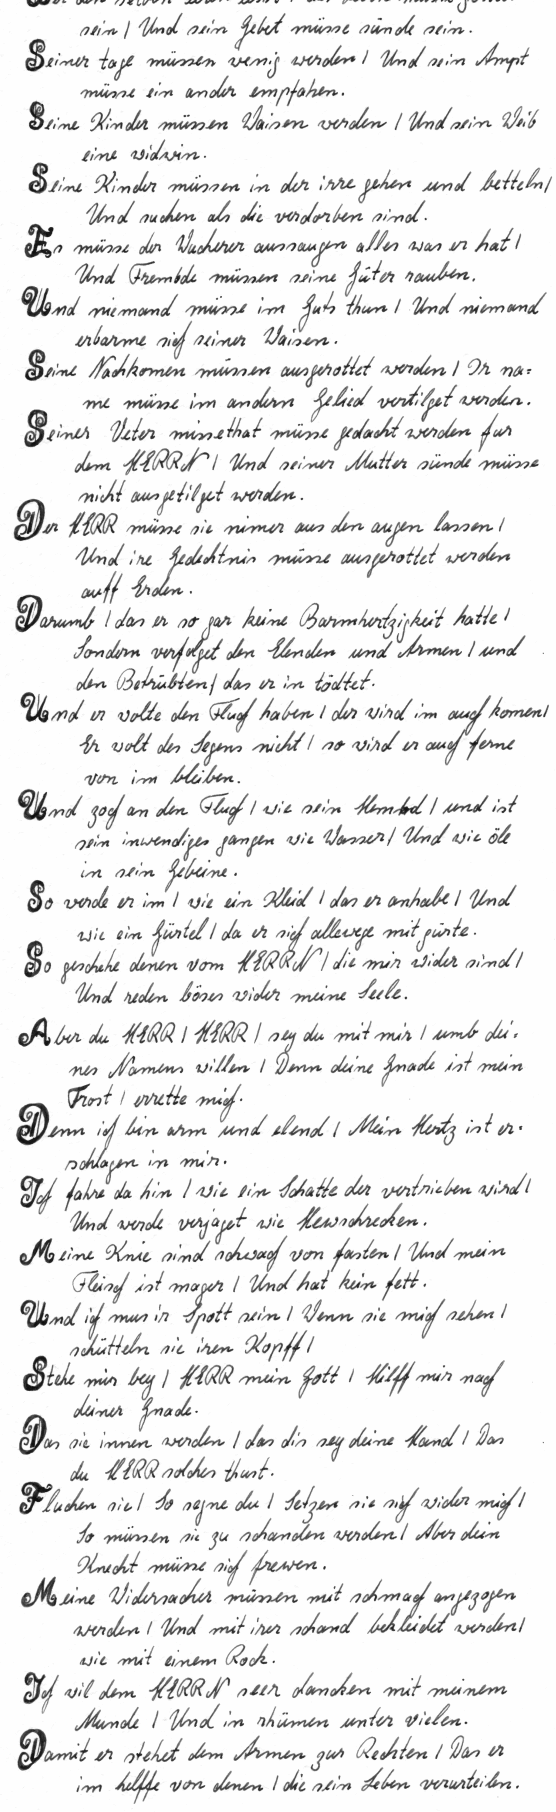 sein / Und sein Gebet müsse sünde sein.
Seiner tage müssen wenig werden / Und sein Ampt
müsse ein ander empfahen.
Seine Kinder müssen Waisen werden / Und sein Weib
eine widwin.
Seine Kinder müssen in der irre gehen und betteln /
Und suchen als die verdorben sind.
Es müsse der Wucherer aussaugen alles was er hat /
Und Frembde müssen seine Güter rauben.
Und niemand müsse im Guts thun / Und niemand
erbarme sich seiner Waisen.
Seine Nachkomen müssen ausgerottet werden / Ir na=
me müsse im andern Gelied vertilget werden.
Seiner Veter missethat müsse gedacht werden fur
dem HERRN / Und seiner Mutter sünde müsse
nicht ausgetilget werden.
Der HERR müsse sie nimer aus den augen lassen /
Und ire Gedechtnis müsse ausgerottet werden
auff Erden.
Darumb / das er so gar keine Barmhertzigkeit hatte /
Sondern verfolget den Elenden und Armen / und
den Betrübten / das er in tödtet.
Und er wolte den Fluch haben / der wird im auch komen /
Er wolt des Segens nicht / so wird er auch ferne
von im bleiben.
Und zoch an den Fluch / wie sein Hembd / und ist
sein inwendiges gangen wie Wasser / Und wie öle
in sein Gebeine.
So werde er im / wie ein Kleid / das er anhabe / Und
wie ein Gürtel / da er sich allewege mit gürte.
So geschehe denen vom HERRN / die mir wider sind /
Und reden böses wider meine Seele.
Aber du HERR / HERR / sey du mit mir / umb dei=
nes Namens willen / Denn deine Gnade ist mein
Trost / errette mich.
Denn ich bin arm und elend / Mein Hertz ist er=
schlagen in mir.
Ich fahre da hin / wie ein Schatte der vertrieben wird /
Und werde verjaget wie Hewschrecken.
Meine Knie sind schwach von fasten / Und mein
Fleisch ist mager / Und hat kein fett.
Und ich mus ir Spott sein / Wenn sie mich sehen /
schütteln sie iren Kopff /
Stehe mir bey / HERR mein Gott / Hilff mir nach
deiner Gnade.
Das sie innen werden / das dis sey deine Hand / Das
du HERR solches thust.
Fluchen sie / So segne du / Setzen sie sich wider mich /
So müssen sie zu schanden werden / Aber dein
Knecht müsse sich frewen.
Meine Widersacher müssen mit schmach angezogen
werden / Und mit irer schand bekleidet werden /
wie mit einem Rock.
Ich wil dem HERRN seer dancken mit meinem
Munde / Und in rhümen unter vielen.
Damit er stehet dem Armen zur Rechten / Das er
im helffe von denen / die sein Leben verurteilen.